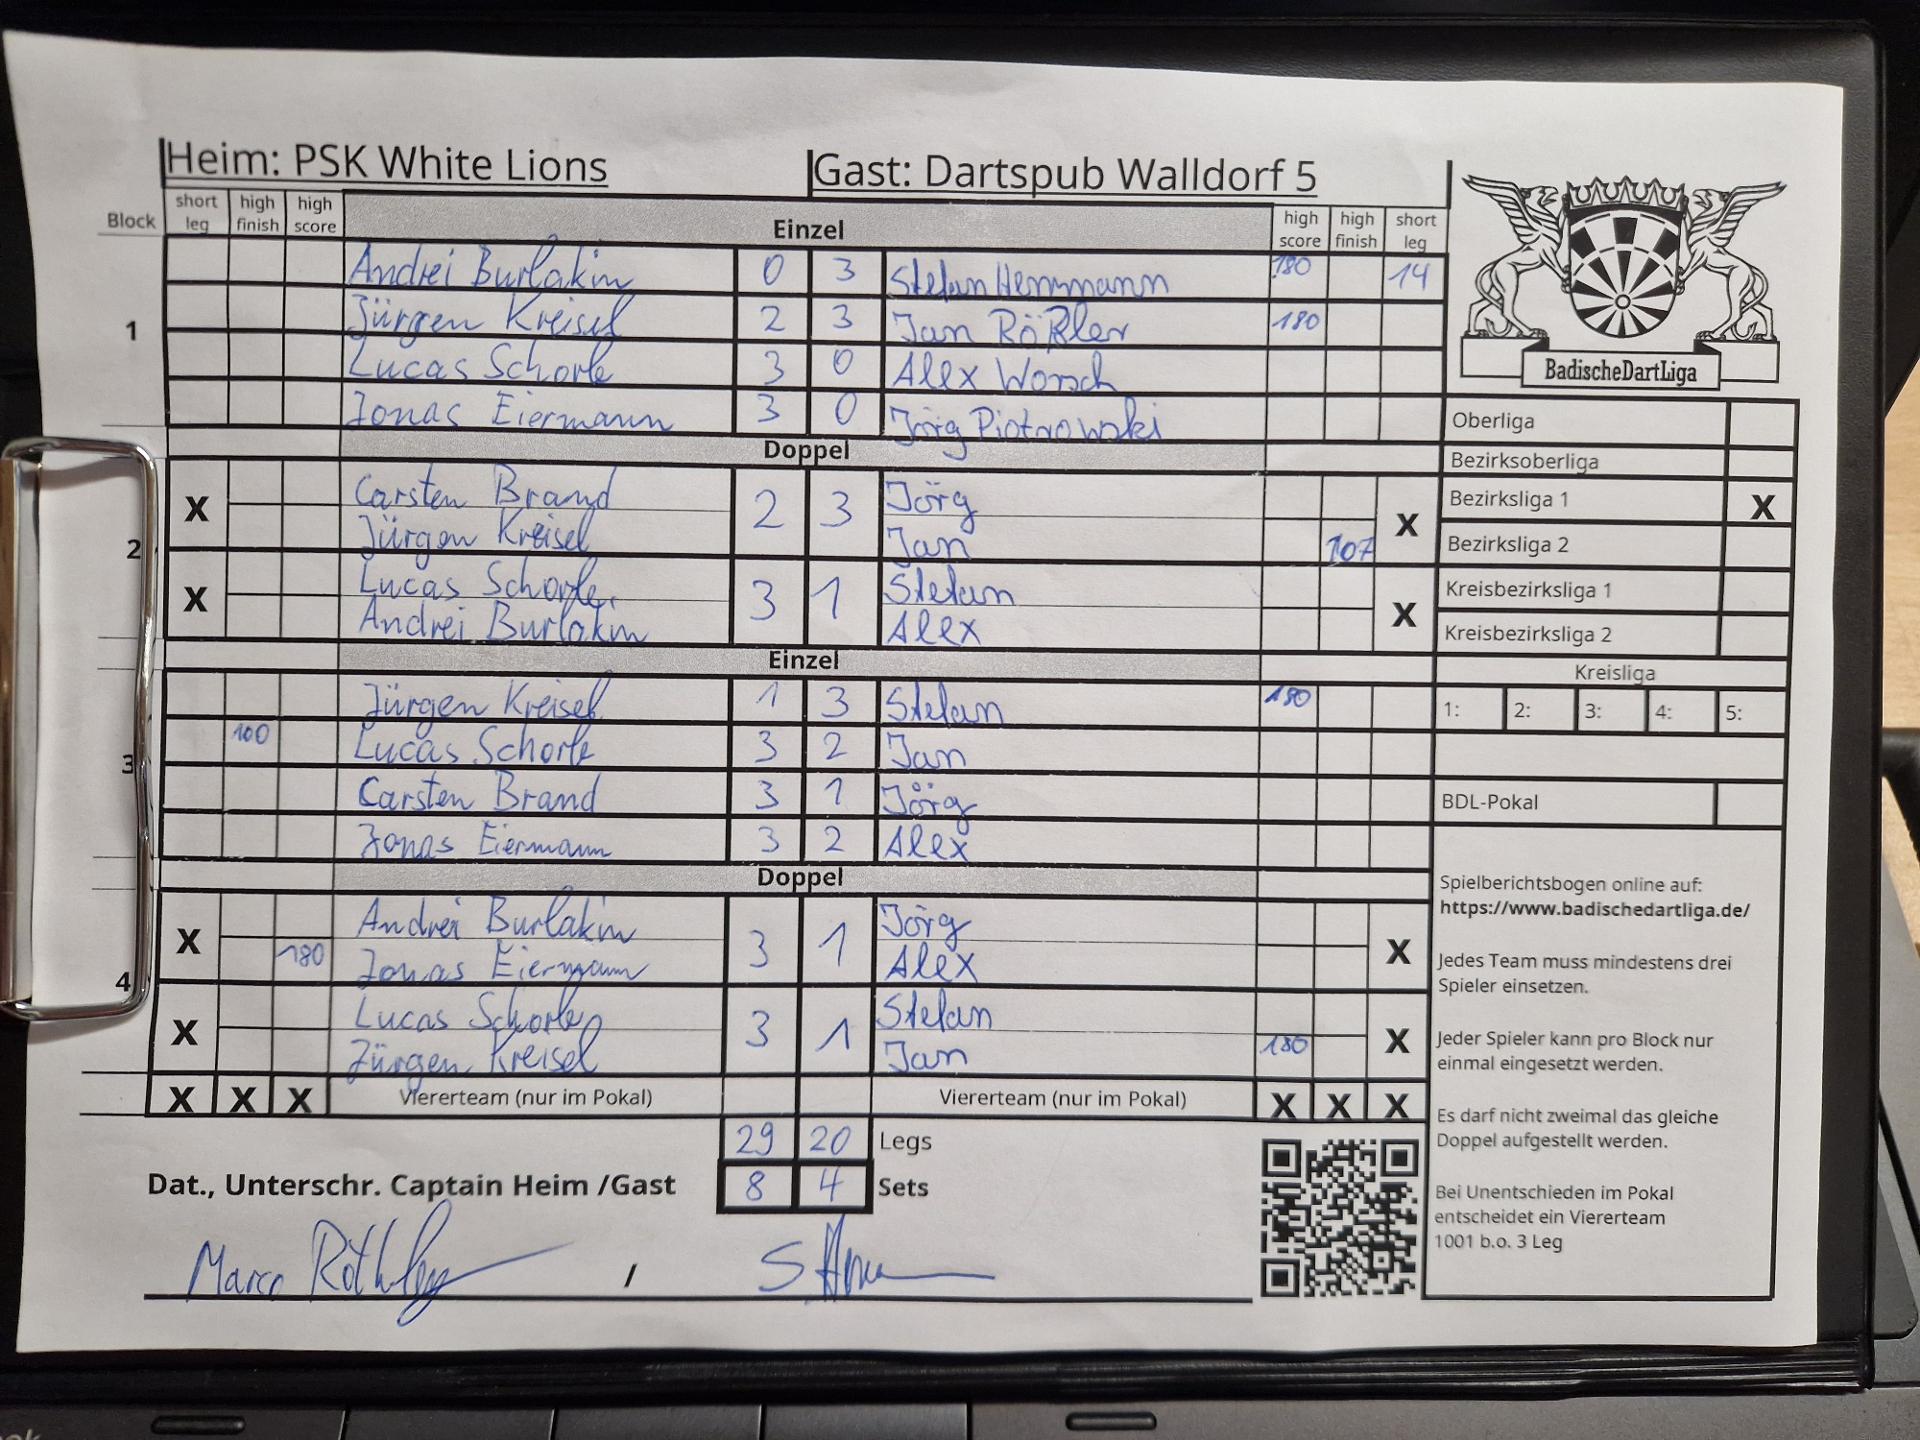 Heim: PSK White Lions Gast: Dartspub Walldorf 5
Block short leg high finish high score Einzel high score high finish short leg
1
Andrei Burlakin 0 3 Stefan Herrmann 180 14
Jürgen Kreisel 2 3 Jan Rößler 180
Lucas Schorle 3 0 Alex Worsch
Jonas Eiermann 3 0 Jörg Piotrowski
Doppel
2
X Carsten Brand 2 3 Jörg X
Jürgen Kreisel Jan 107
X Lucas Schorle 3 1 Stefan X
Andrei Burlakin Alex
Einzel
3
Jürgen Kreisel 1 3 Stefan 180
100 Lucas Schorle 3 2 Jan
Carsten Brand 3 1 Jörg
Jonas Eiermann 3 2 Alex
Doppel
4
X Andrei Burlakin 3 1 Jörg X
180 Jonas Eiermann Alex
X Lucas Schorle 3 1 Stefan X
Jürgen Kreisel Jan 180
X X X Viererteam (nur im Pokal) Viererteam (nur im Pokal) X X X
29 20 Legs
Dat., Unterschr. Captain Heim /Gast 8 4 Sets
Marco /
BadischeDartLiga
Oberliga
Bezirksoberliga
Bezirksliga 1 X
Bezirksliga 2
Kreisbezirksliga 1
Kreisbezirksliga 2
Kreisliga
1: 2: 3: 4: 5:
BDL-Pokal
Spielberichtsbogen online auf:
https://www.badischedartliga.de/
Jedes Team muss mindestens drei
Spieler einsetzen.
Jeder Spieler kann pro Block nur
einmal eingesetzt werden.
Es darf nicht zweimal das gleiche
Doppel aufgestellt werden.
Bei Unentschieden im Pokal
entscheidet ein Viererteam
1001 b.o. 3 Leg